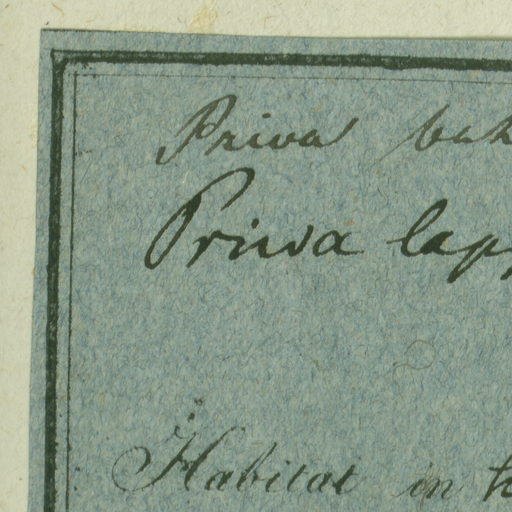 Priva
Priva lapp
Habitat in